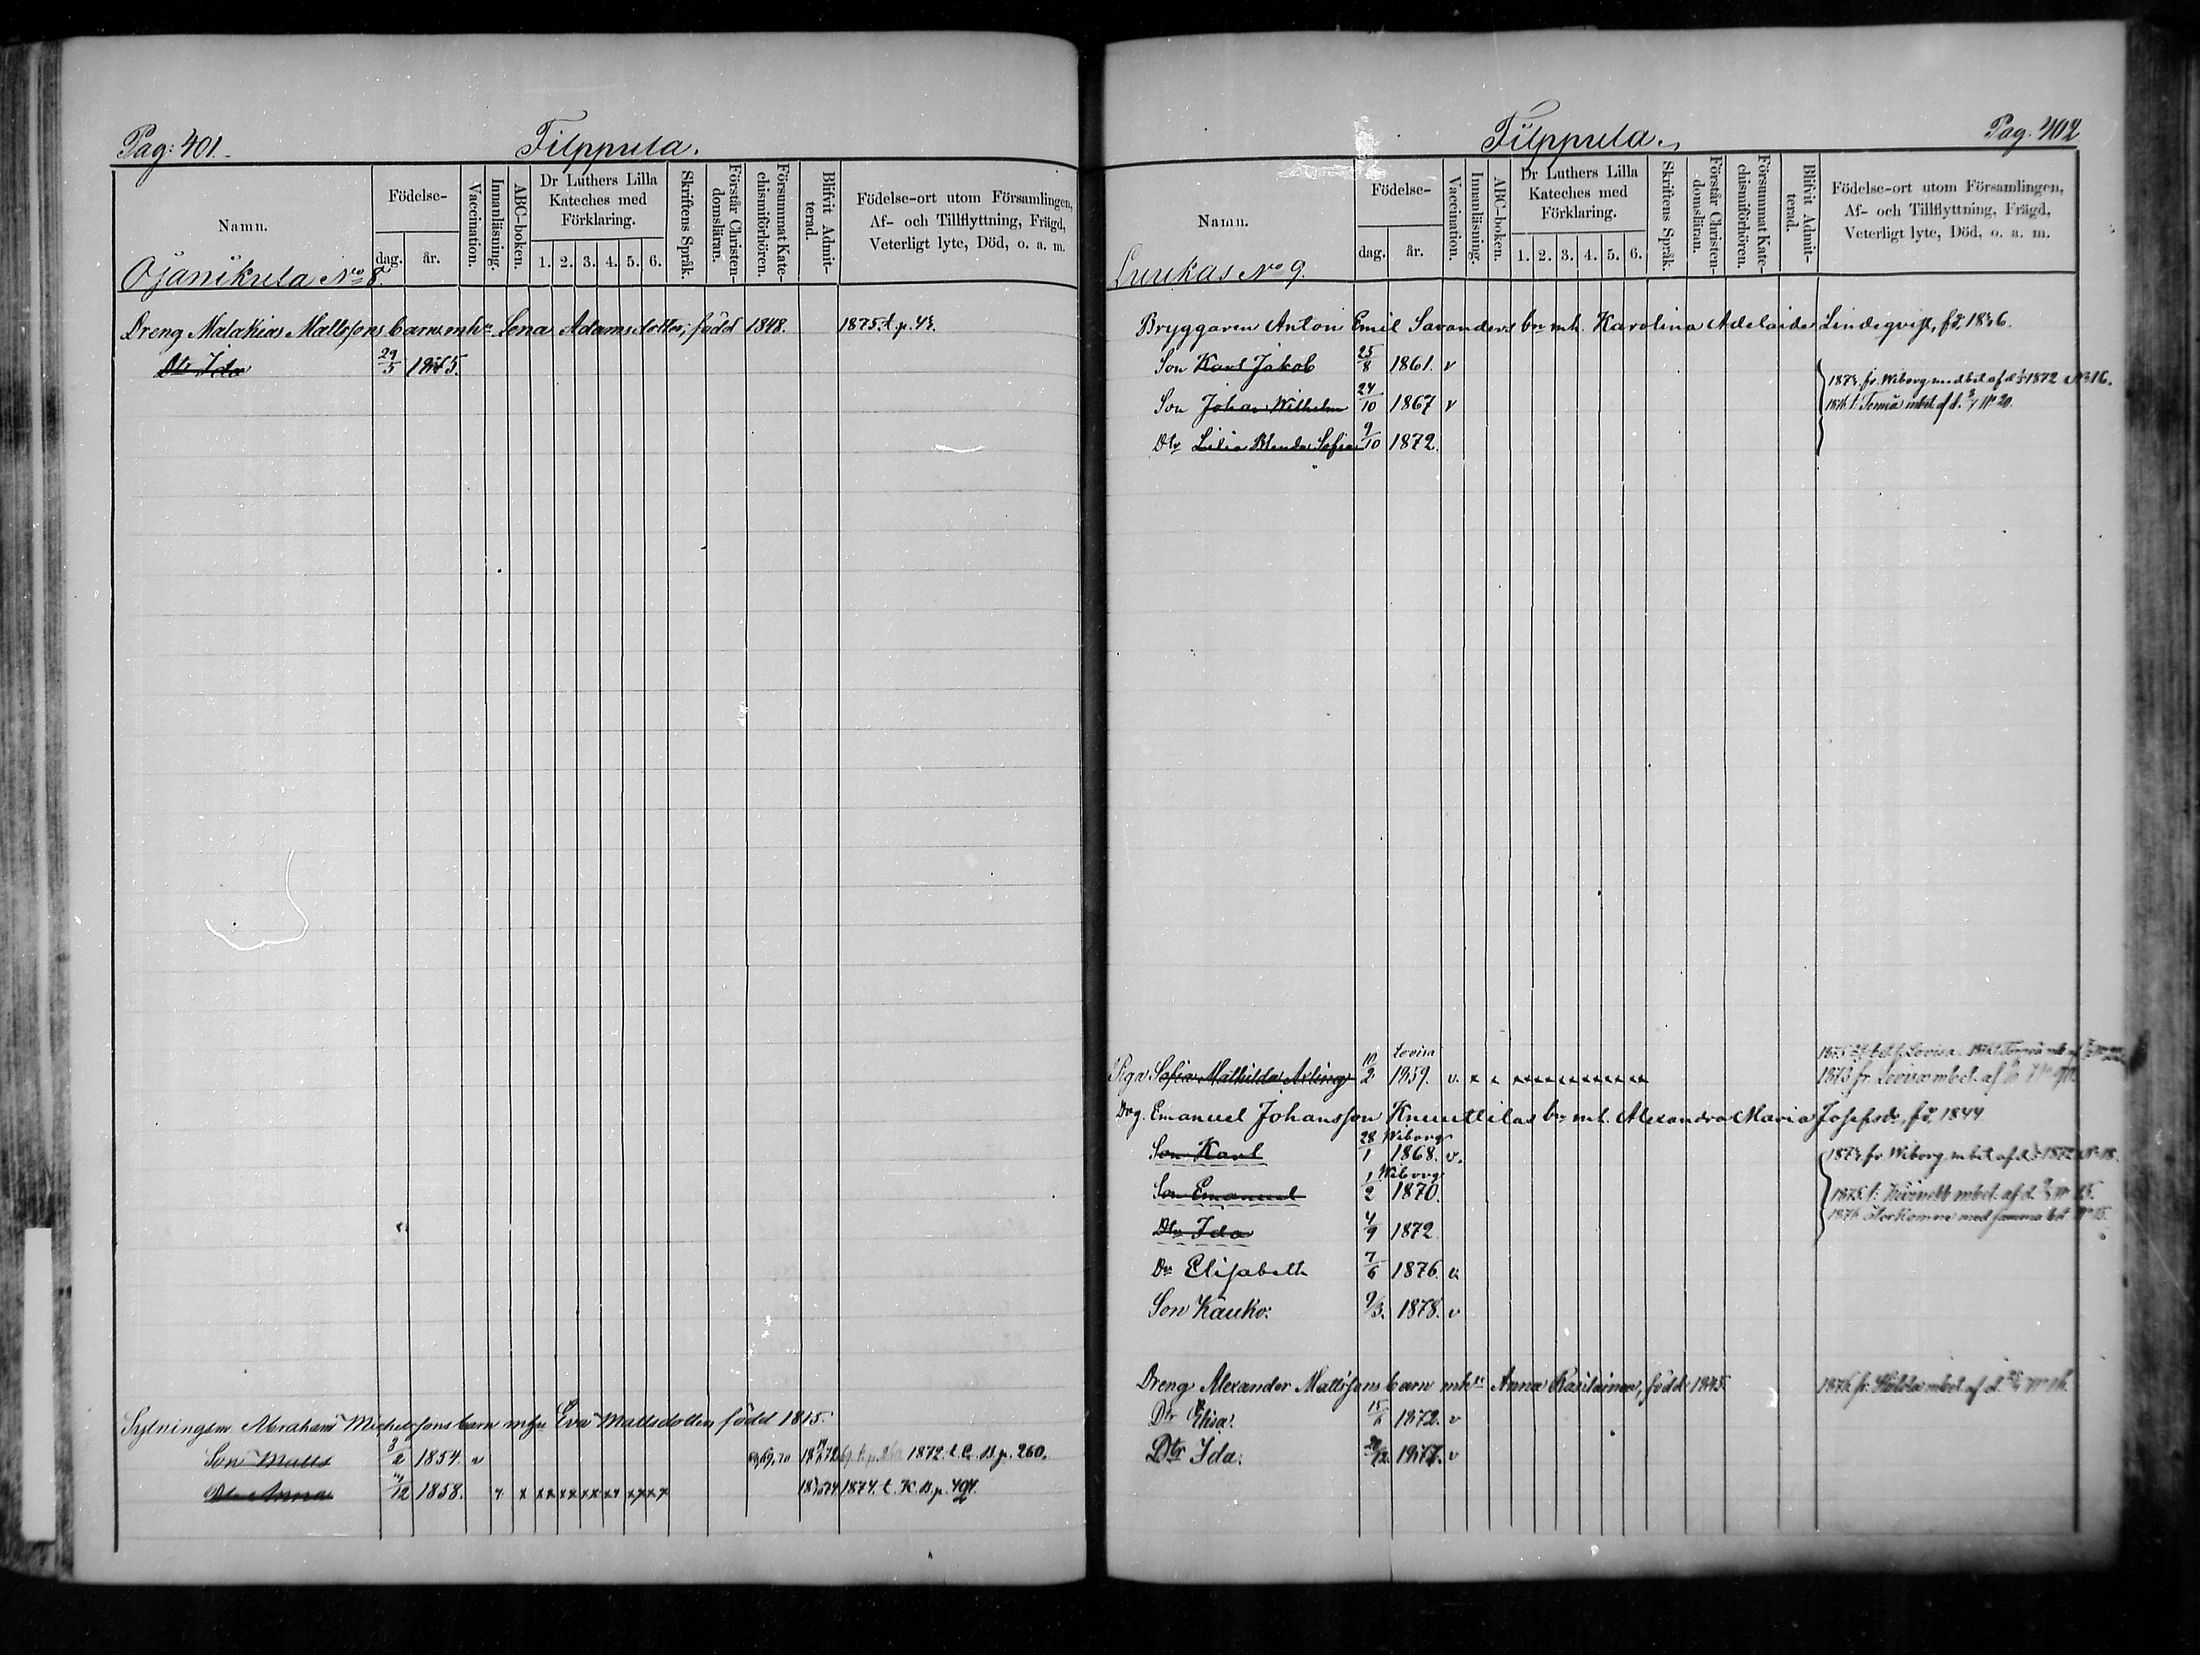 Pag: 401.
Filppula.
Namn.
Födelse-
dag.
år.
Vaccination.
Innanläsning.
ABC-boken.
Dr Luthers Lilla
Kateches med
Förklaring.
1. 2. 3. 4. 5. 6.
Skriftens Språk.
Förstår Christen-
domsläran.
Försummat Kate-
chismiförhören.
Blifvit Admit-
terad.
Födelse-ort utom Församlingen,
Af- och Tillflyttning, Frägd,
Veterligt lyte, Död, o. a. m.
Ojanikula No 8.
Dreng Malakias Mattssons barn mhu Lena Adamsdotter, född 1848. 1875. t. p. 43.
Dtr Ida 29/5 1875.
Sytningsm Abraham Michelssons barn mhu Eva Mattsdotter född 1815.
Son Matts 3/2 1854. v 1872. t. B. p. 260.
Dtr Anna /12 1858. x x x x x x x x x x 1874. t. K. B. p. 494.
Pag. 402
Filppula.
Namn.
Födelse-
dag.
år.
Vaccination.
Innanläsning.
ABC-boken.
Dr Luthers Lilla
Kateches med
Förklaring.
1. 2. 3. 4. 5. 6.
Skriftens Språk.
Förstår Christen-
domsläran.
Försummat Kate-
chismiförhören.
Blifvit Admit-
terad.
Födelse-ort utom Församlingen,
Af- och Tillflyttning, Frägd,
Veterligt lyte, Död, o. a. m.
Luukas No 9.
Bryggaren Anton Emil Savanders bn mh. Karolina Adelaide Lindeqvist, fd. 1836.
Son Karl Jakob 25/8 1861. v
1873. fr. Wiborg med bet af d. 1872 No 16.
Son Johan Wilhelm 24/10 1867 v
1876 t. Torneå mbet. af d. No 20.
Dtr Lilia Blenda Sofia 9/10 1872.
Lovisa
Piga Sofia Mathilda Arling 10/2 1859. v. x x x x x x x x 1873 fr. Lovisa mbet. af
Drg. Emanuel Johansson Knuuttilas bn mh. Alexandra Maria Josefsdr, fd. 1844
Son Karl 28/1 Wiborg 1868. v. 1873 fr Wiborg mbet af d. 1872 No 18.
Son Emanuel 1/2 Wiborg 1870. 1875 t. mbet. af d.
1876 återkomne med samma bet No 15.
Dtr Ida 4/9 1872.
Dr Elisabeth 7/6 1876. v.
Son Kauko: 9/3. 1878. v
Dreng Alexander Mattssons barn mhu Anna Rasilainen, född 1845. 1876 fr. mbet af d.
Dtr Elisa. 15/6 1872. v
Dtr Ida. 29/12 1877. v